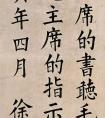 席的書聽毛
主席的指示
年四月 徐